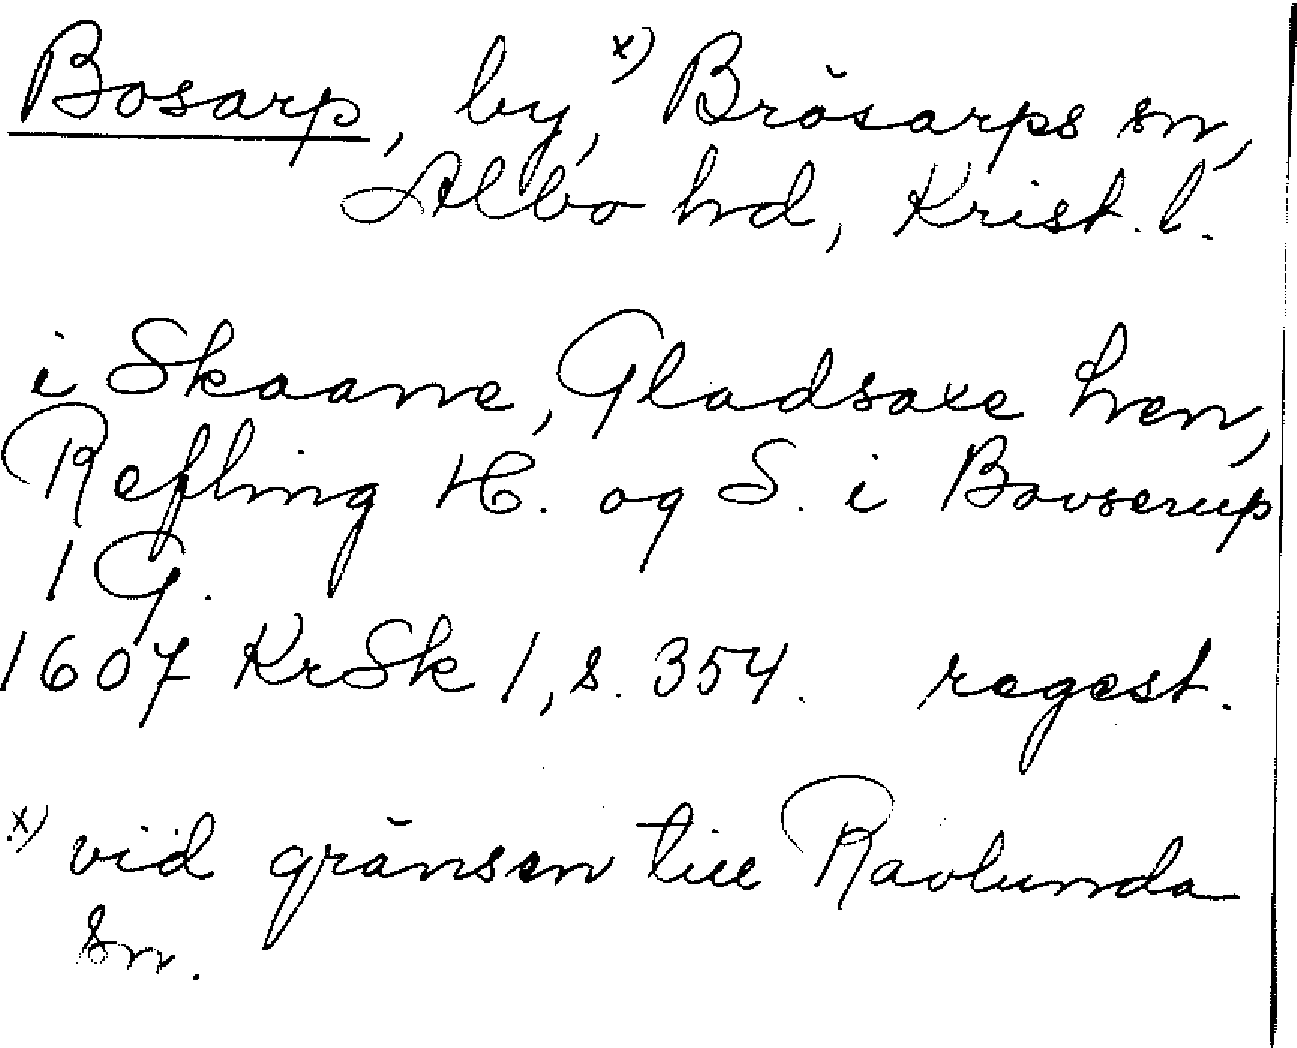 Bosarp, by, x) Brösarps sn,
Albo hrd, Krist. l.
i Skaane, Gladsaxe Len,
Refling H. og S. i Bovserup
1 G.
1607 KrSk 1, s. 354. regest.
x) vid gränsen till Ravlunda
sn.